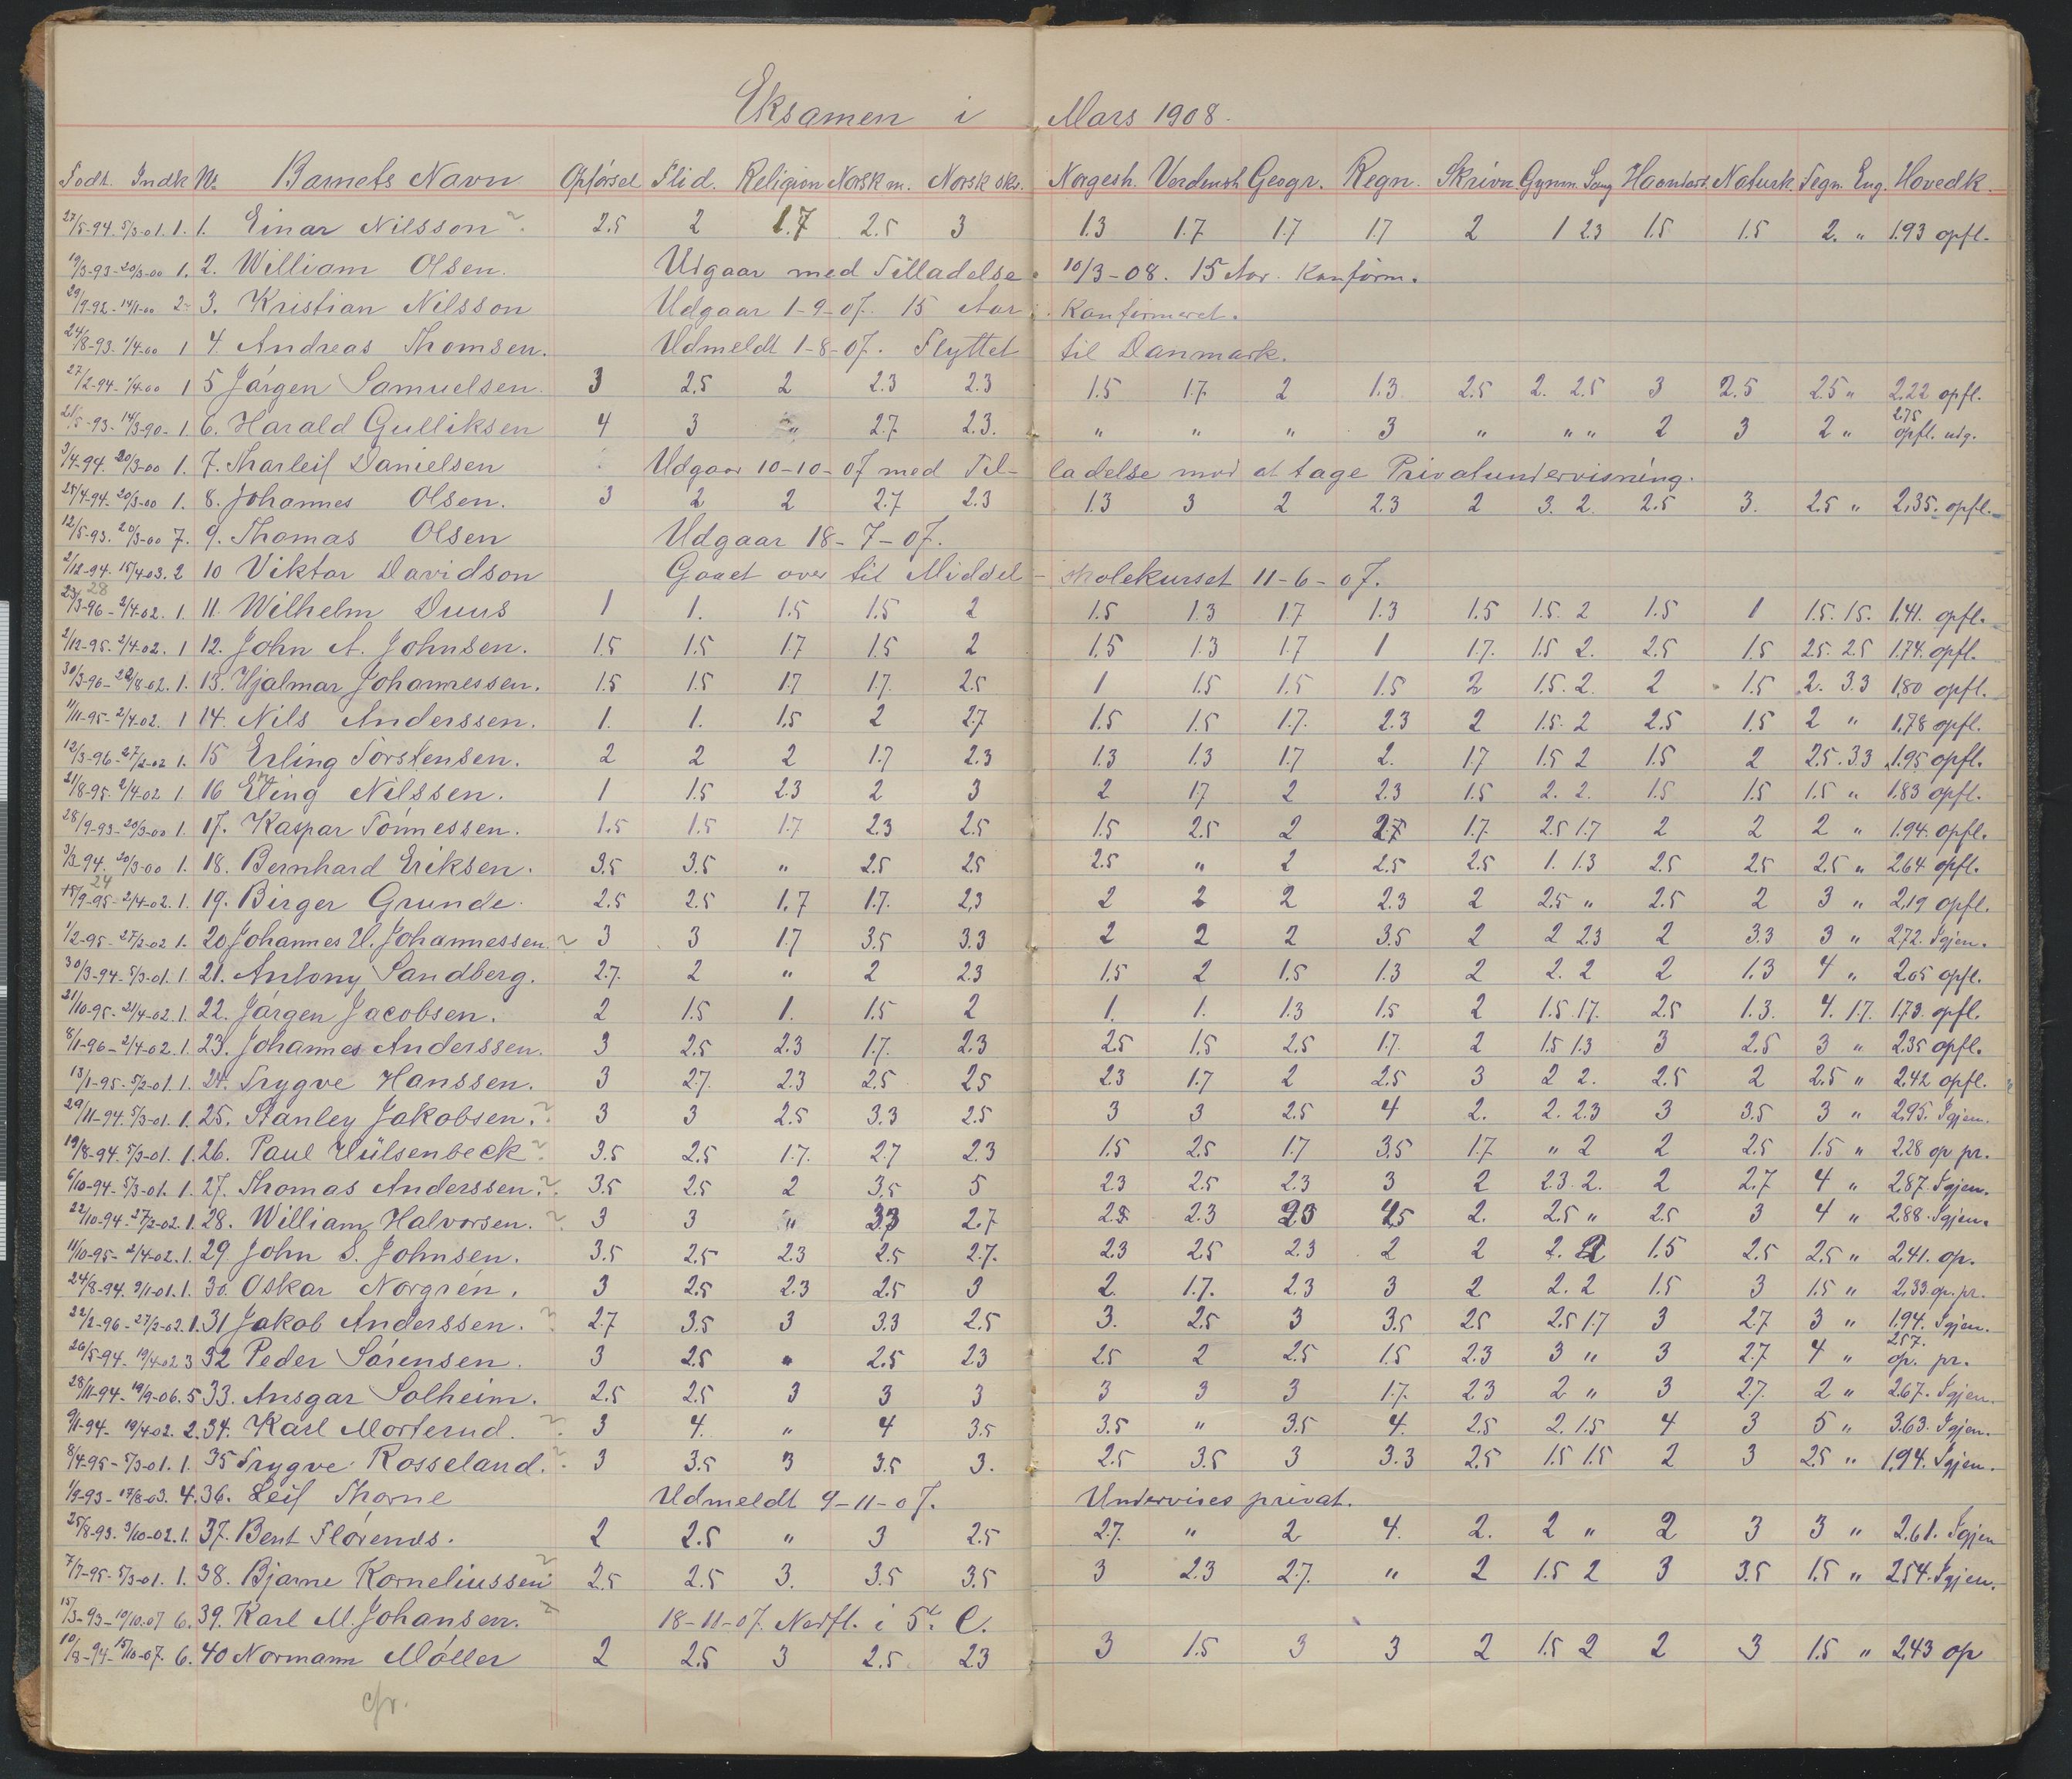 Eksamen i Mars 1908.
Födt. Indk No Barnets Navn Opförsel Flid. Religion Norsk m. Norsk skr. Norgesh. Verdensh. Geogr. Regn. Skrivn. Gymn. Sang Haandarb. Naturk. Tegn. Eng. Hovedk.
27/5-94. 5/3-01. 1. 1. Einar Nilsson 2.5 2 1.7 2.5 3 1.3 1.7 1.7 1.7 2 1 2.3 1.5 1.5 2. " 1.93 opfl.
19/3-93-20/3-00 1. 2. William Olsen. Udgaar med Tilladelse 10/3-08. 15 Aar. Konfirm.
29/9-92-14/11-00 2 3. Kristian Nilsson Udgaar 1-9-07. 15 Aar Konfirmeret.
24/8-93. 1/4-00 1 4. Andreas Thomsen. Udmeldt 1-8-07. Flyttet til Danmark.
27/2-94-1/4-00 1 5 Jörgen Samuelsen. 3 2.5 2 2.3 2.3 1.5 1.7 2 1.3 2.5 2. 2.5 3 2.5 2.5 " 2.22 opfl.
21/5-93-14/3-90-1. 6. Harald Gulliksen 4 3 " 2.7 2.3. " " " 3 " " " 2 3 2 " 2.75 opfl. udg.
3/4-94. 20/3-00 1. 7. Tharleif Danielsen Udgaar 10-10-07 med Til- ladelse mod at tage Privatundervisning.
25/4-94. 20/3-00 1. 8. Johannes Olsen. 3 2 2 2.7 2.3 1.3 3 2 2.3 2 3. 2. 2.5 3. 2.5 " 2.35. opfl.
12/5-93. 20/3-00 7. 9. Thomas Olsen Udgaar 18-7-07.
2/12-94. 15/4-03. 2 10 Viktor Davidson Gaaet over til Middel- skolekurset 11-6-07.
23/3-96-2/4-02. 1. 11. Wilhelm Duus 1 1. 1.5 1.5 2 1.5 1.3 1.7 1.3 1.5 1.5. 2 1.5 1 1.5. 1.5. 1.41. opfl.
2/12-95. 2/4-02. 1 12. John A. Johnsen. 1.5 1.5 1.7 1.5 2 1.5 1.3 1.7 1 1.7. 1.5 2. 2.5 1.5 2.5. 2.5 1.74. opfl.
30/3-96-22/8-02. 1. 13. Hjalmar Johannessen. 1.5 1.5 1.7 1.7. 2.5 1 1.5 1.5 1.5 2 1.5. 2. 2 1.5 2. 3.3 1.80 opfl.
11/11-95-2/4-02. 1 14. Nils Anderssen. 1. 1. 1.5 2 2.7 1.5 1.5 1.7. 2.3 2 1.5. 2 2.5 1.5 2 " 1.78 opfl.
12/3-96-27/2-02 1. 15 Erling Torstensen. 2 2 2 1.7 2.3 1.3 1.3 1.7 2. 1.7 1.5 2 1.5 2 2.5. 3.3 1.95 opfl.
21/8-95. 2/4-02 1 16 Eling Nilssen. 1 1.5 2.3 2 3 2 1.7 2 2.3 1.5 2. 2. 1.5 1.5 1.5 " 1.83 opfl.
28/9-93-20/3-00 1. 17. Kaspar Tönnessen. 1.5 1.5 1.7 2.3 2.5 1.5 2.5 2 2.7 1.7 2.5 1.7 2 2 2 " 1.94. opfl.
3/3-94. 20/3-00 1. 18. Bernhard Eriksen. 3.5 3.5 " 2.5 2.5 2.5 " 2 2.5 2.5 1. 1.3 2.5 2.5 2.5 " 2.64 opfl.
24/9-95-2/4-02. 1. 19. Birger Grunde. 2.5 2.5 1.7 1.7. 2.3 2 2 2 2.3 2 2.5 " 2.5 2 3 " 2.19 opfl.
1/2-95-27/2-02 1. 20 Johannes H. Johannessen. 3 3 1.7 3.5 3.3 2 2 2 3.5 2 2 2.3 2 3.3 3 " 2.72. Igjen.
30/3-94-5/3-01. 1. 21. Antony Sandberg. 2.7. 2 " 2 2.3 1.5 2 1.5 1.3 2 2. 2 2 1.3 4 " 2.05 opfl.
21/10-95-2/4-02. 1. 22. Jörgen Jacobsen. 2 1.5 1. 1.5 2 1. 1. 1.3 1.5 2 1.5. 1.7. 2.5 1.3. 4. 1.7. 1.73. opfl.
8/1-96-2/4-02. 1. 23. Johannes Anderssen. 3 2.5 2.3 1.7. 2.3 2.5 1.5 2.5 1.7. 2 1.5 1.3 3 2.5 3 " 2.35 opfl.
13/1-95-5/2-01. 1. 24. Trygve Hanssen. 3 2.7. 2.3 2.5 2.5 2.3 1.7 2 2.5 3 2 2. 2.5 2 2.5 " 2.42 opfl.
29/11-94. 5/3-01. 1. 25. Stanley Jakobsen. 3 3 2.5 3.3 2.5 3 3 2.5 4 2. 2. 2.3 3 3.5 3 " 2.95. Igjen.
19/8-94. 5/3-01. 1. 26. Paul Hülsenbeck 3.5 2.5 1.7. 2.7 2.3 1.5 2.5 1.7 3.5 1.7. " 2 2 2.5 1.5 " 2.28 op pr.
6/10-94-5/3-01. 1. 27. Thomas Anderssen. 3.5 2.5 2 3.5 5 2.3 2.5 2.3 3 2 2.3. 2. 2 2.7 4 " 2.87. Igjen.
22/10-94-27/2-02. 1. 28. William Halvorsen. 3 3 " 3.3 2.7 2.3. 2.3 2.3 4.5 2. 2.5 " 2.5 3 4 " 2.88. Igjen.
11/10-95-2/4-02. 1. 29 John S. Johnsen. 3.5 2.5 2.3 2.5 2.7. 2.3 2.5 2.3 2 2 2. 2 1.5 2.5 2.5 " 2.41. op.
24/8-94. 9/11-01. 1. 30. Oskar Norgrén. 3 2.5 2.3 2.5 3 2. 1.7. 2.3 3 2 2. 2 1.5 3 1.5 " 2.33. op. pr.
22/2-96-27/2-02. 1. 31 Jakob Anderssen. 2.7 3.5 3 3.3 2.5 3. 2.5 3 3.5 2.5 2.5 1.7 3 2.7 3 " 1.94. Igjen.
26/5-94. 19/4-02. 3 32 Peder Sörensen. 3 2.5 " 2.5 2.3 2.5 2 2.5 1.5 2.3 3 " 3 2.7 4 " 2.57. op. pr.
28/11-94-19/9-06. 5 33. Ansgar Solheim. 2.5 2.5 3 3 3 3 3 3 1.7. 2.3 2 " 3 2.7. 2 " 2.67. Igjen.
9/1-94. 19/4-02. 2. 34. Karl Morterud. 3 4. " 4 3.5 3.5 " 3.5 4. 2.5 2. 1.5 4 3 5 " 3.63. Igjen.
8/4-95-5/3-01. 1. 35 Trygve Rosseland. 3 3.5 3 3.5 3. 2.5 3.5 3 3.3 2.5 1.5 1.5 2 3 2.5 " 1.94. Igjen.
1/9-93-17/8-03. 4. 36. Leif Thorne Udmeldt 9-11-07. Undervises privat.
25/8-93. 3/10-02. 1. 37. Bent Flörends. 2 2.5 " 3 2.5 2.7. " 2 4. 2. 2 " 2 3 3 " 2.61. Igjen
7/7-95-5/3-01. 1. 38. Bjarne Korneliussen 2.5 2.5 3. 3.5 3.5 3 2.3 2.7. " 2 1.5 2 3 3.5 1.5 " 2.54. Igjen.
15/3-93-19/10-07 6. 39. Karl M. Johansen. 18-11-07. Nedfl. i 5. C.
10/8-94-15/10-07. 6. 40 Normann Möller 2 2.5 3 2.5 2.3 3 1.5 3 3 2 1.5 2 2 3 1.5 " 2.43 op